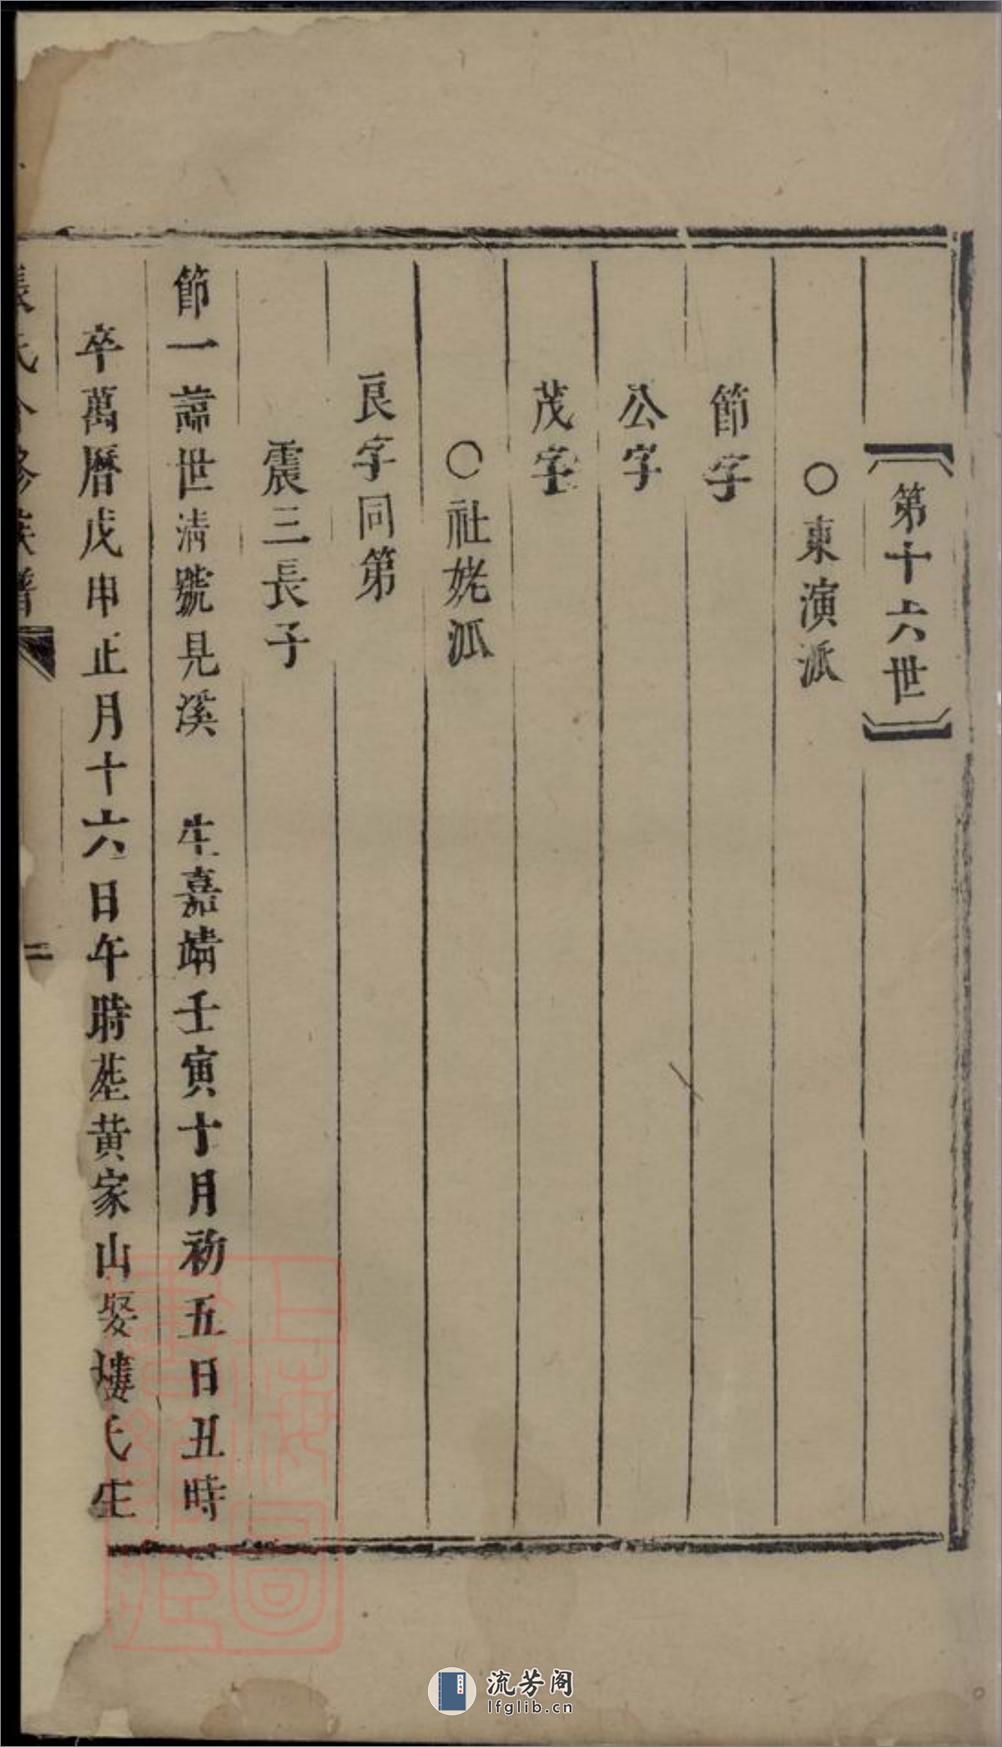 【第十六世】
○東演派
節字
公字
茂字
○社姥派
良字同第
震三長子
節一諱世淸號見溪 生嘉靖壬寅十月初五日丑時
卒萬曆戊申正月十六日午時塟黄家山娶樓氏生
張氏合修族譜
二
上海圖書館藏
流芳阁
lfglib.cn